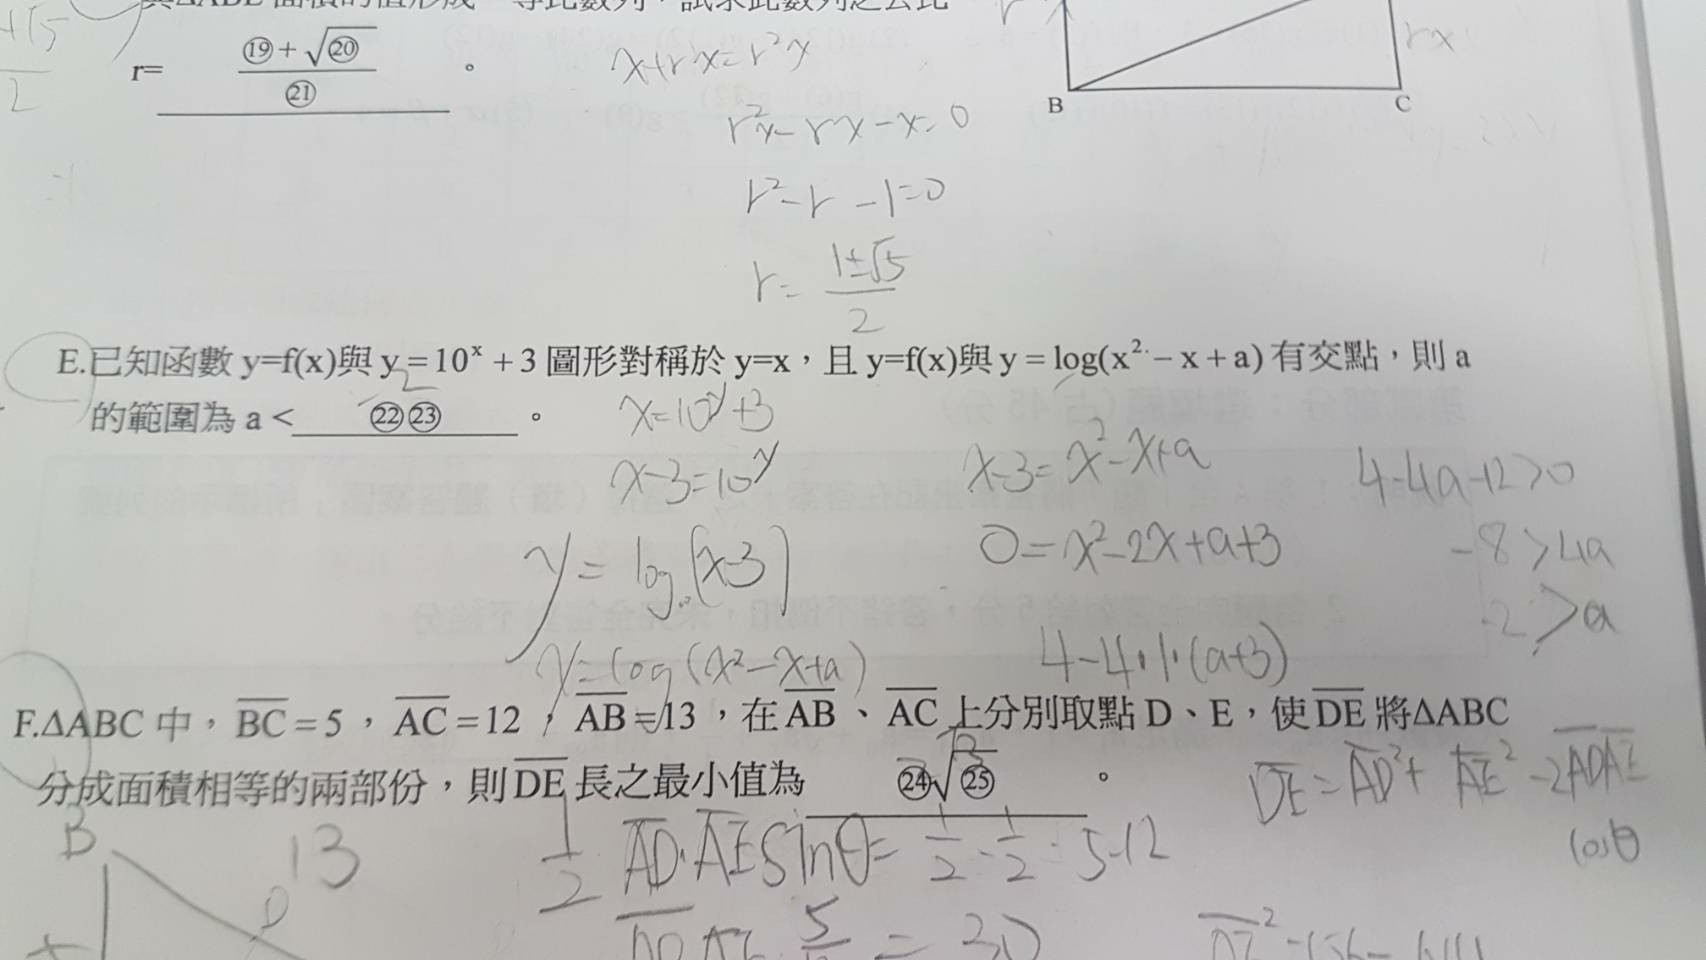 與ΔABE 面積的值形成一等比數列，試求此數列之公比
r= (⑲+√⑳)/㉑ 。
+√5
2
x+rx=r²x
r²x-rx-x=0
r²-r-1=0
r=(1±√5)/2
rx
B C
E.已知函數 y=f(x)與 y=10ˣ+3 圖形對稱於 y=x，且 y=f(x)與 y=log(x²-x+a) 有交點，則 a
的範圍為 a<㉒㉓。
-2
x=10^y+3
x-3=10^y
y=log(x-3)
y=log(x²-x+a)
x-3=x²-x+a
0=x²-2x+a+3
4-4·1·(a+3)
4-4a-12>0
-8>4a
-2>a
F.ΔABC 中，BC=5，AC=12，AB=13，在 AB、AC 上分別取點 D、E，使 DE 將ΔABC
分成面積相等的兩部份，則 DE 長之最小值為 ㉔√㉕ 。
DE=AD²+AE²-2ADAE
cosθ
B 13
D
1/2 AD·AE sinθ=1/2·1/2·5·12
= 30